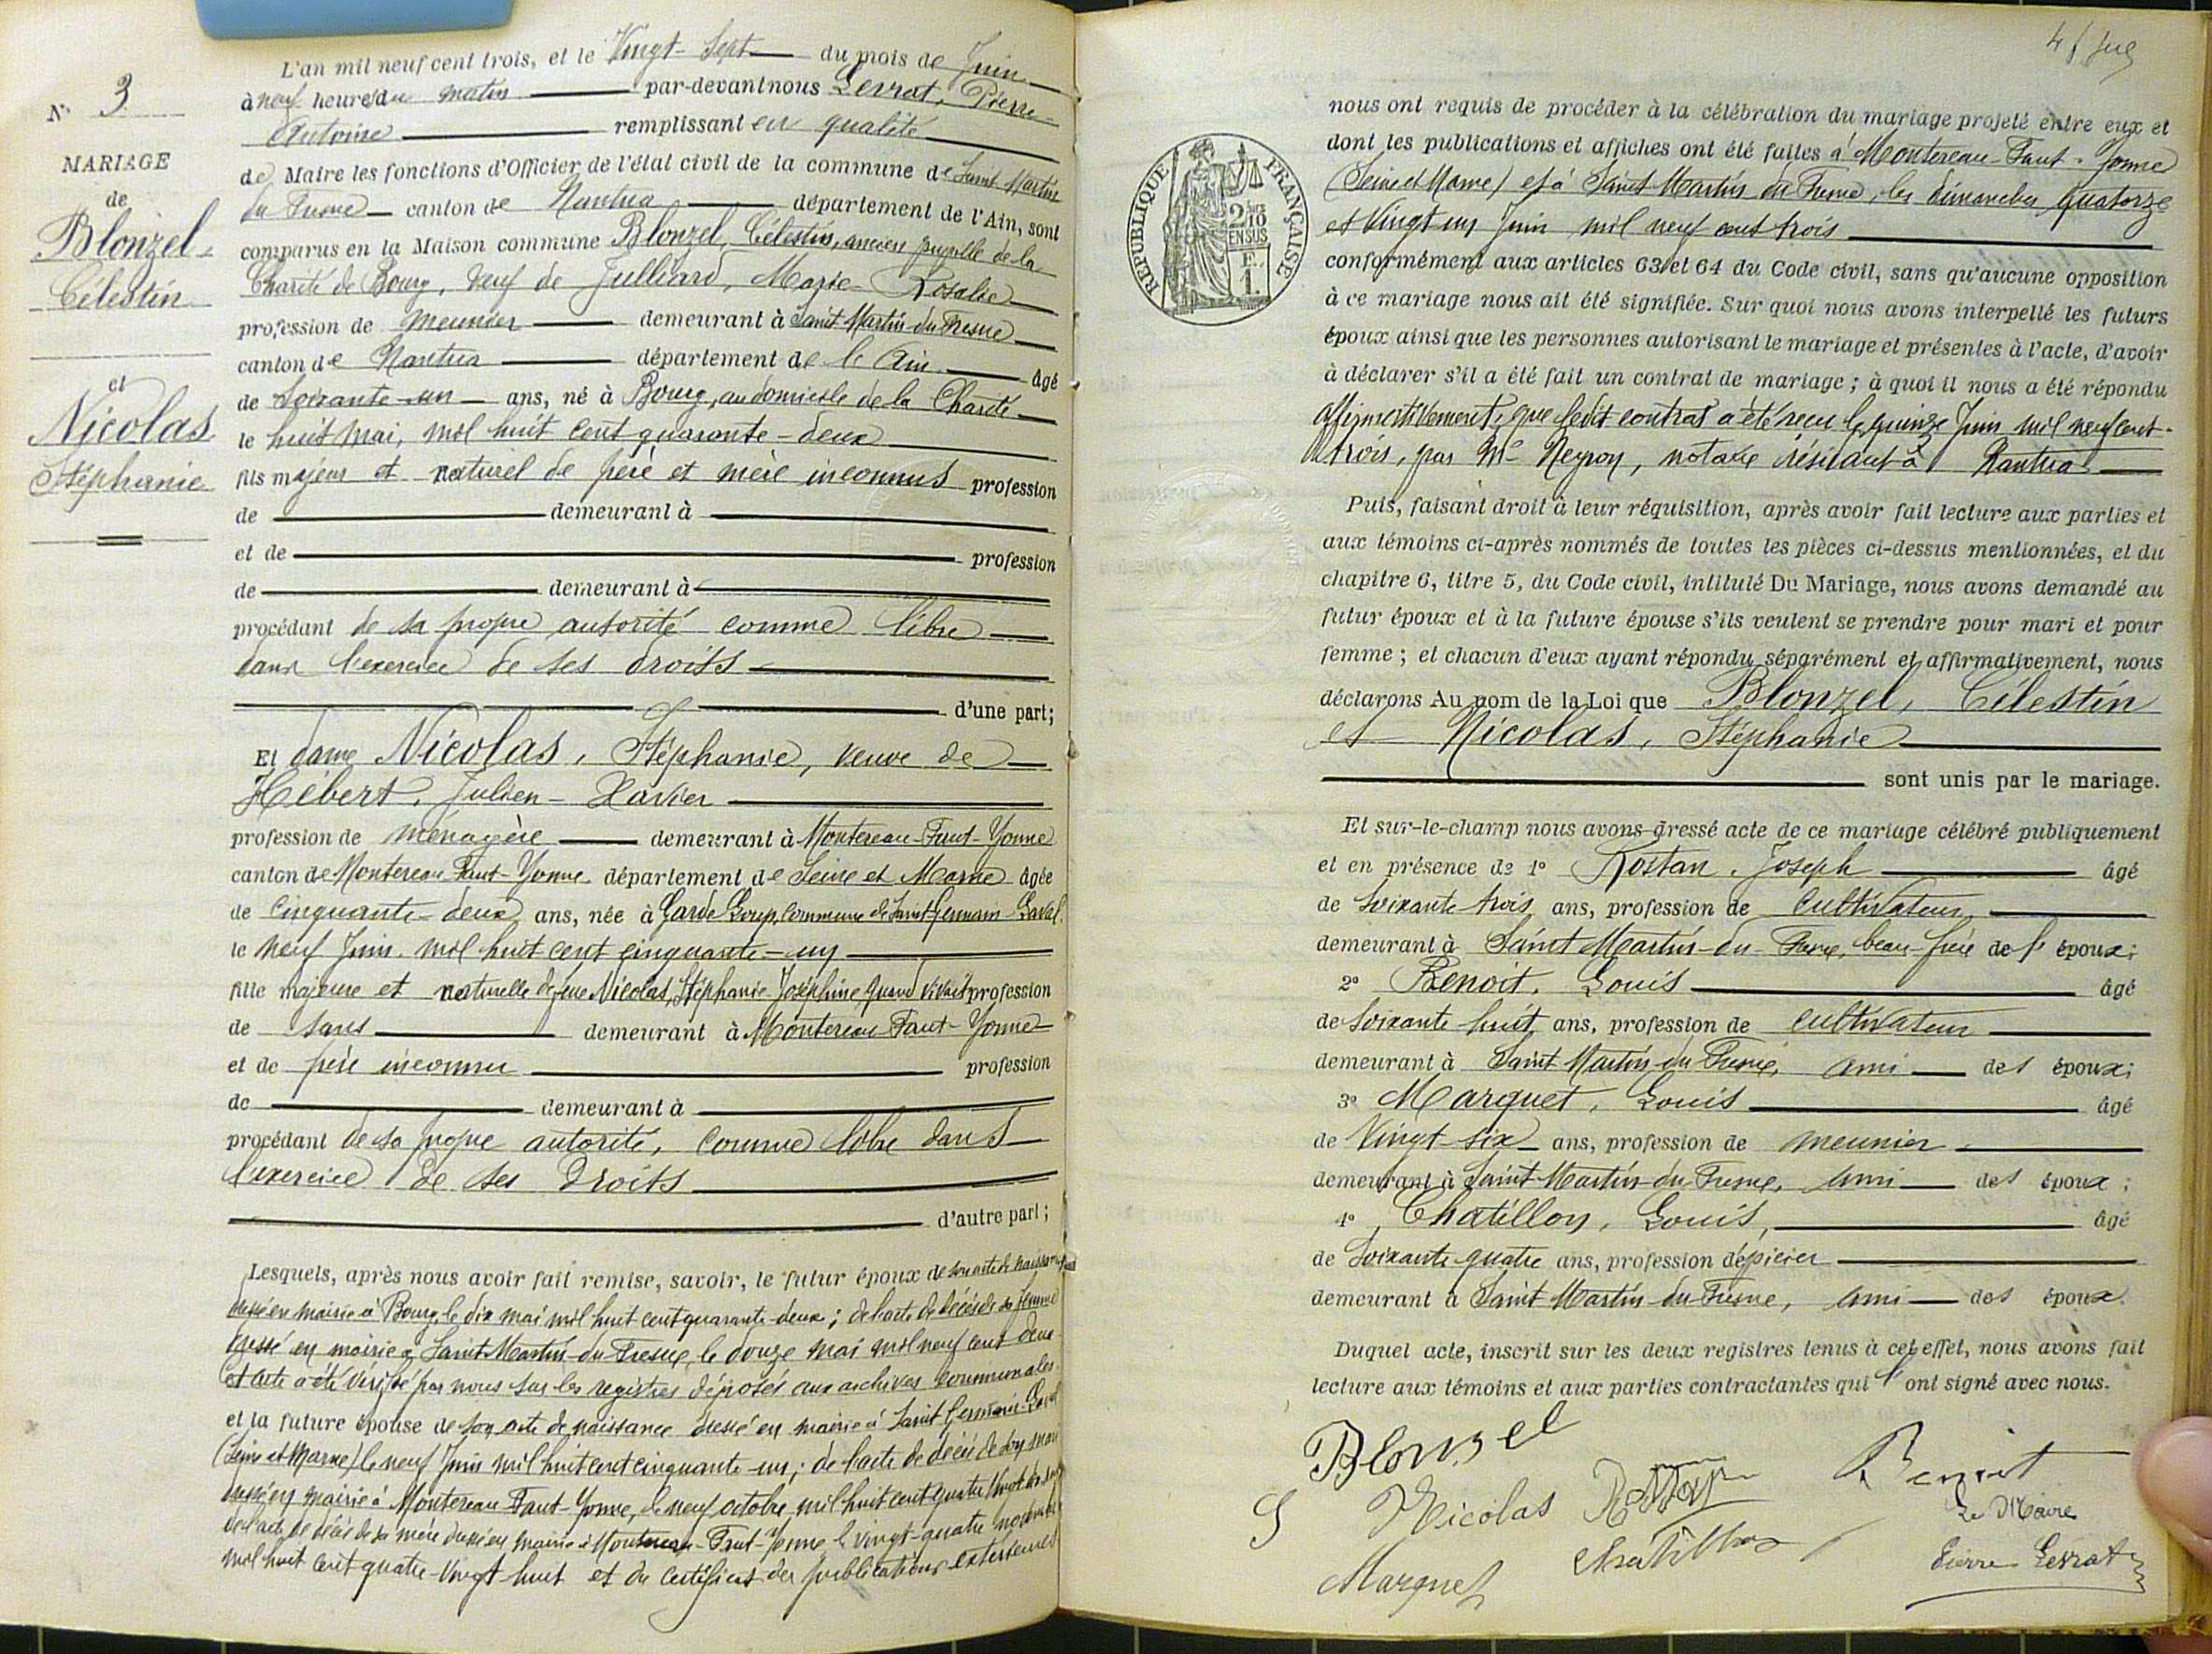 N° 3
MARIAGE
de
Blonzel
Célestin
et
Nicolas
Stéphanie
L'an mil neuf cent trois, et le Vingt-Sept du mois de Juin
à neuf heures du matin par-devant nous Levrat, Pierre-
Antoine remplissant en qualité
de Maire les fonctions d'Officier de l'état civil de la commune de Saint Martin
du Fresne canton de Nantua département de l'Ain, sont
comparus en la Maison commune Blonzel, Célestin, ancien pupille de la
Charité de Bourg, veuf de Julliard, Marie-Rosalie
profession de meunier demeurant à Saint Martin-du-Fresne
canton de Nantua département de l'Ain âgé
de Soixante-un ans, né à Bourg, au domicile de la Charité
le huit mai, mil huit cent quarante-deux
fils majeur et naturel de père et mère inconnus profession
de demeurant à
et de profession
de demeurant à
procédant de sa propre autorité comme libre
dans l'exercice de ses droits
d'une part;
Et dame Nicolas, Stéphanie, veuve de
Hébert, Julien-Xavier
profession de ménagère demeurant à Montereau-Faut-Yonne
canton de Montereau-Faut-Yonne département de Seine et Marne âgée
de Cinquante-deux ans, née à Garde Loup, commune de Saint-Germain-Laval
le neuf Juin mil huit cent cinquante-un
fille majeure et naturelle de feue Nicolas, Stéphanie Joséphine quand vivait profession
de sans demeurant à Montereau-Faut-Yonne
et de père inconnu profession
de demeurant à
procédant de sa propre autorité, comme libre dans
l'exercice de ses droits
d'autre part;
Lesquels, après nous avoir fait remise, savoir, le futur époux de son acte de naissance
dressé en mairie à Bourg, le dix mai mil huit cent quarante-deux; de l'acte de décès de sa femme
dressé en mairie à Saint Martin-du-Fresne, le douze mai mil neuf cent deux
cet acte a été vérifié par nous sur les registres déposés aux archives communales
et la future épouse de son acte de naissance dressé en mairie à Saint Germain-Laval
(Seine et Marne) le neuf Juin mil huit cent cinquante-un; de l'acte de décès de son mari
dressé en mairie à Montereau-Faut-Yonne, le neuf octobre mil huit cent quatre vingt
de l'acte de décès de sa mère dressé en mairie à Montereau-Faut-Yonne le vingt-quatre novembre
mil huit cent quatre-vingt-huit et du certificat des publications extérieures
nous ont requis de procéder à la célébration du mariage projeté entre eux et
dont les publications et affiches ont été faites à Montereau-Faut-Yonne
(Seine et Marne) et à Saint Martin du Fresne, les dimanches quatorze
et Vingt un Juin mil neuf cent trois
conformément aux articles 63 et 64 du Code civil, sans qu'aucune opposition
à ce mariage nous ait été signifiée. Sur quoi nous avons interpellé les futurs
époux ainsi que les personnes autorisant le mariage et présentes à l'acte, d'avoir
à déclarer s'il a été fait un contrat de mariage; à quoi il nous a été répondu
affirmativement, que ledit contrat a été reçu le quinze Juin mil neuf cent-
trois, par Me Neyron, notaire résidant à Nantua
Puis, faisant droit à leur réquisition, après avoir fait lecture aux parties et
aux témoins ci-après nommés de toutes les pièces ci-dessus mentionnées, et du
chapitre 6, titre 5, du Code civil, intitulé Du Mariage, nous avons demandé au
futur époux et à la future épouse s'ils veulent se prendre pour mari et pour
femme; et chacun d'eux ayant répondu séparément et affirmativement, nous
déclarons Au nom de la Loi que Blonzel, Célestin
et Nicolas, Stéphanie
sont unis par le mariage.
Et sur-le-champ nous avons dressé acte de ce mariage célébré publiquement
et en présence de 1° Rostan, Joseph âgé
de Soixante trois ans, profession de cultivateur
demeurant à Saint Martin-du-Fresne, beau-frère de l'époux;
2° Benoit, Louis âgé
de Soixante huit ans, profession de cultivateur
demeurant à Saint Martin-du-Fresne, ami des époux;
3° Marquet, Louis âgé
de Vingt-six ans, profession de meunier
demeurant à Saint-Martin-du-Fresne, ami des époux;
4° Chatillon, Louis, âgé
de Soixante quatre ans, profession d'épicier
demeurant à Saint Martin-du-Fresne, ami des époux.
Duquel acte, inscrit sur les deux registres tenus à cet effet, nous avons fait
lecture aux témoins et aux parties contractantes qui l'ont signé avec nous.
Blonzel
S Nicolas Rostan Benoit
Marquet Chatillon
Le Maire
Pierre Levrat
RÉPUBLIQUE FRANÇAISE
2/10
EN SUS